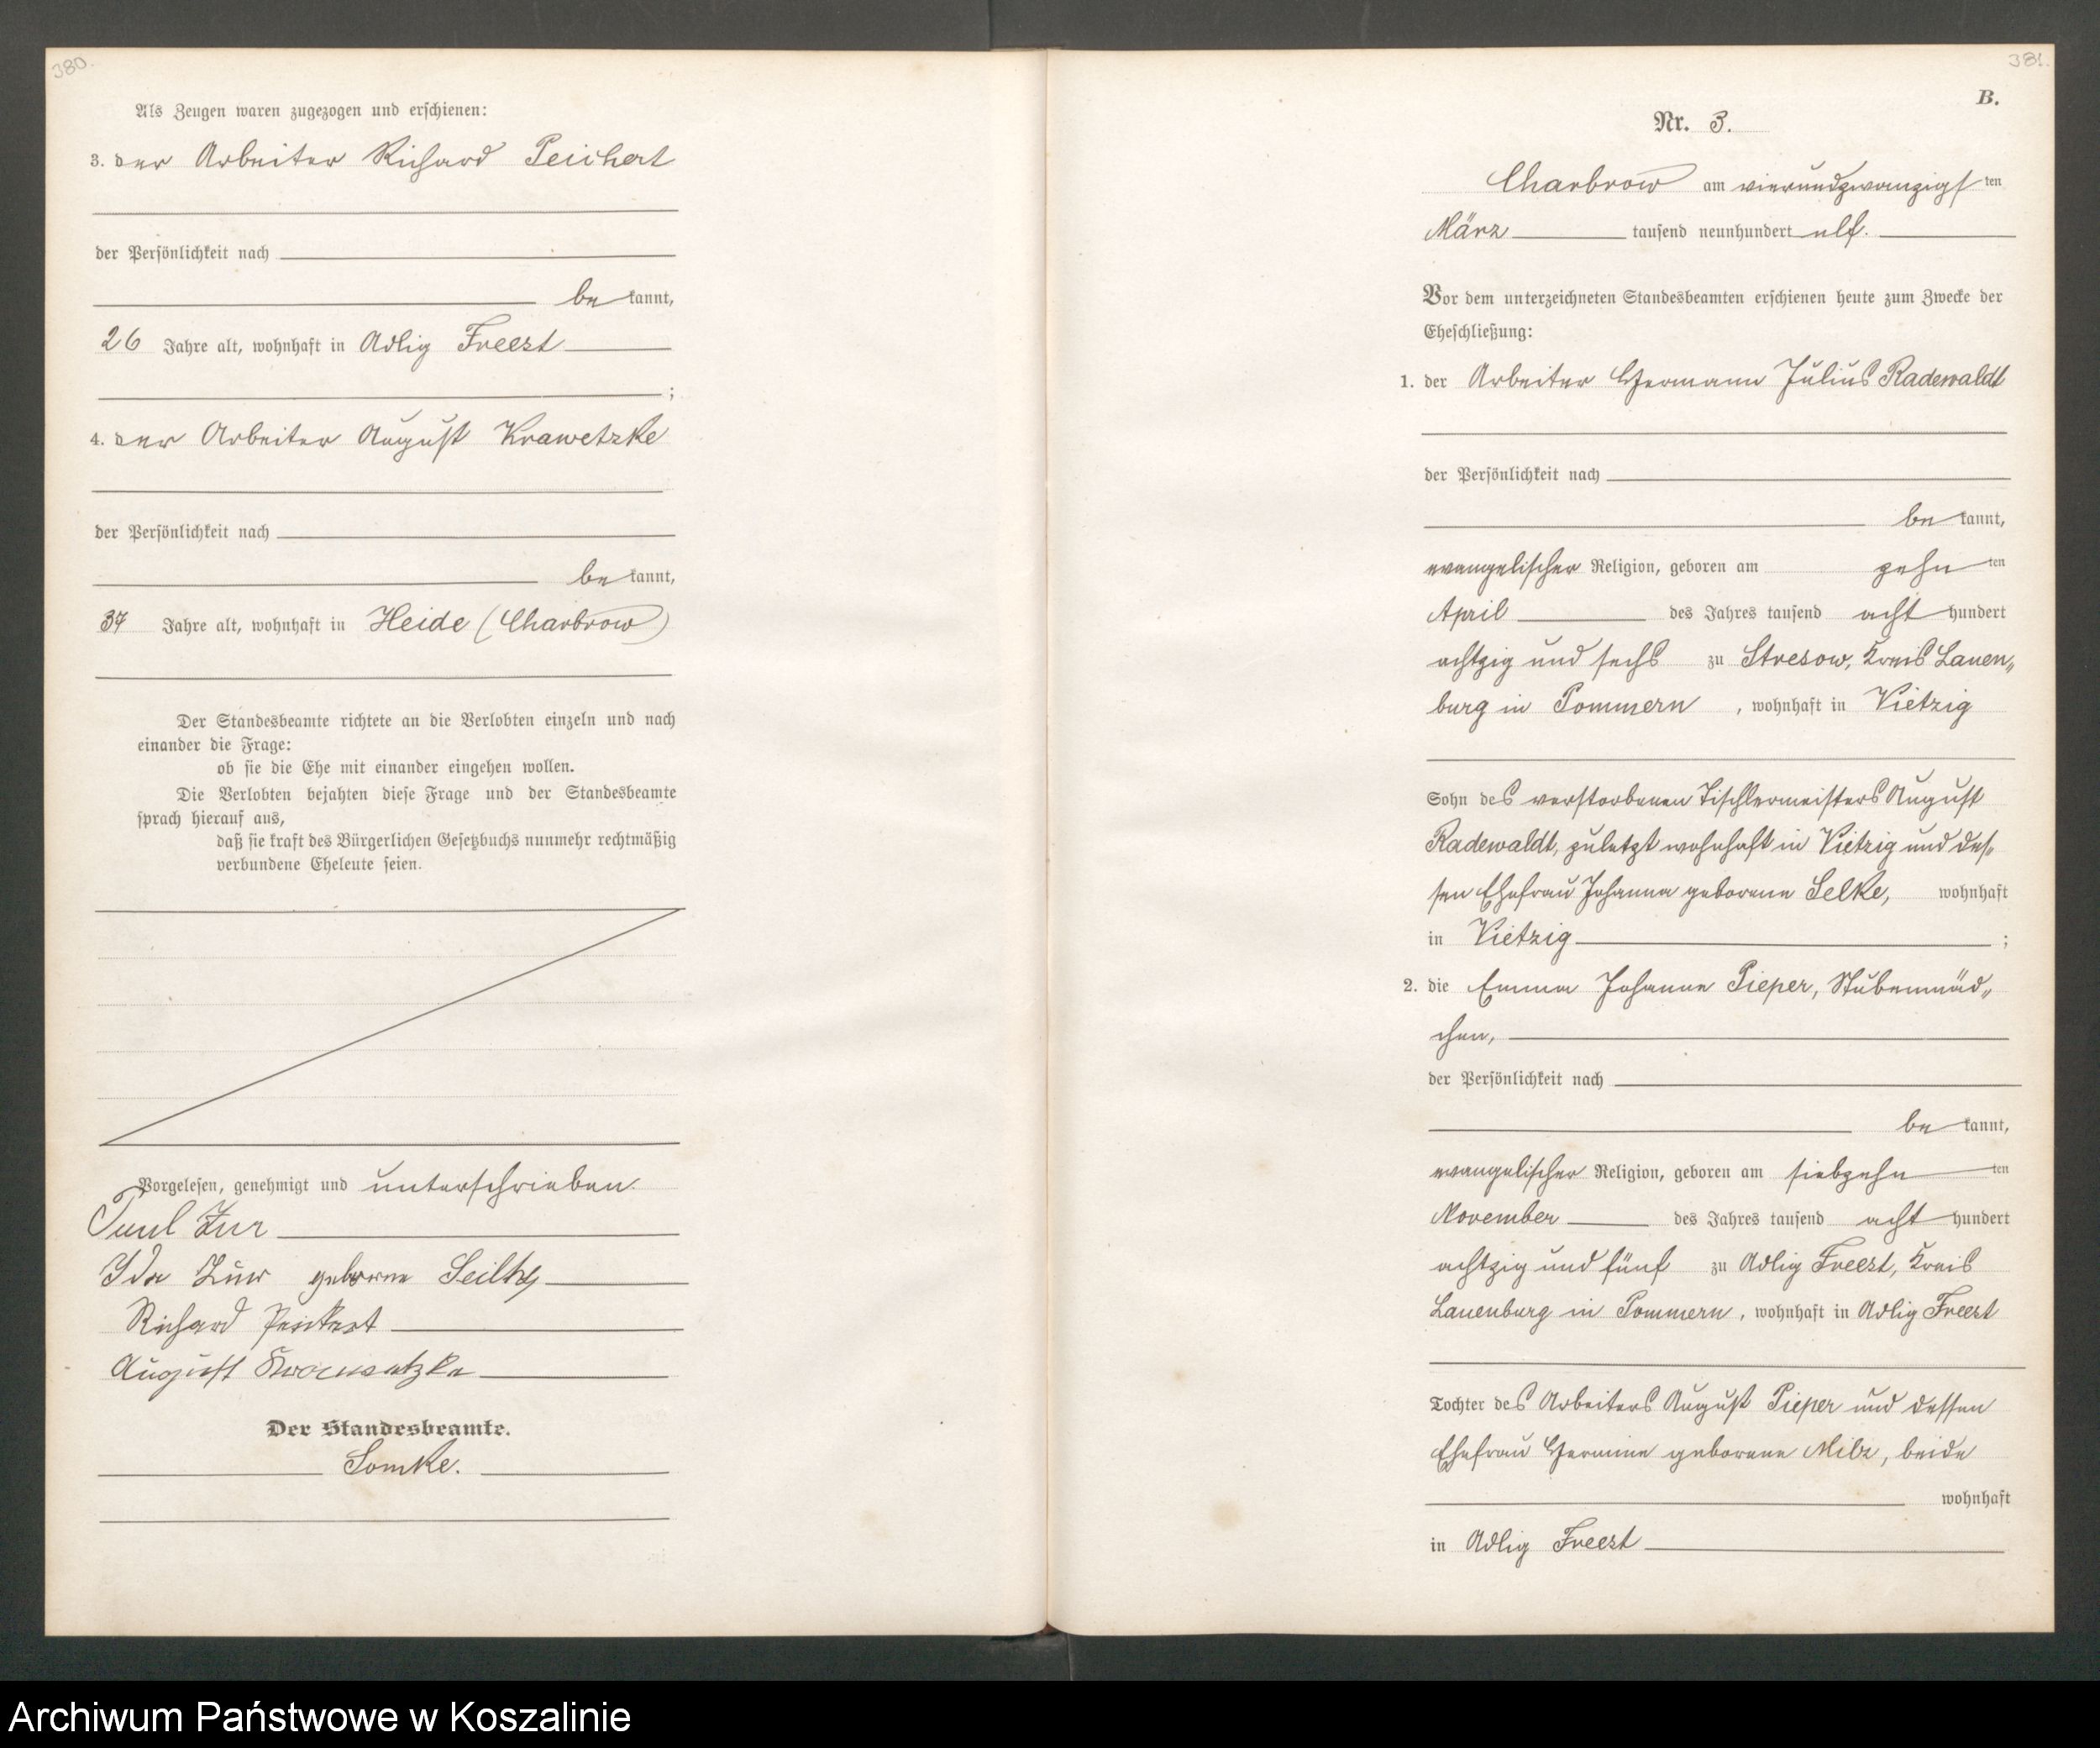 380.
Als Zeugen waren zugezogen und erschienen:
3. der Arbeiter Richard Peichert
der Persönlichkeit nach
be kannt,
26 Jahre alt, wohnhaft in Adlig Freest
;
4. der Arbeiter August Krawetzke
der Persönlichkeit nach
be kannt,
37 Jahre alt, wohnhaft in Heide (Charbrow)
Der Standesbeamte richtete an die Verlobten einzeln und nach
einander die Frage:
ob sie die Ehe mit einander eingehen wollen.
Die Verlobten bejahten diese Frage und der Standesbeamte
sprach hierauf aus,
daß sie kraft des Bürgerlichen Gesetzbuchs nunmehr rechtmäßig
verbundene Eheleute seien.
Vorgelesen, genehmigt und unterschrieben.
Paul Zur
Ida Zur geborne
Richard Peichert
August Krawetzke
Der Standesbeamte.
Somke.
381.
B.
Nr. 3.
Charbrow am vierundzwanzigsten
März tausend neunhundert elf.
Vor dem unterzeichneten Standesbeamten erschienen heute zum Zwecke der
Eheschließung:
1. der Arbeiter Hermann Julius Radewaldt
der Persönlichkeit nach
be kannt,
evangelischer Religion, geboren am zehn ten
April des Jahres tausend acht hundert
achtzig und sechs zu Stresow, Kreis Lauen„
burg in Pommern, wohnhaft in Vietzig
Sohn des verstorbenen Tischlermeisters August
Radewaldt, zuletzt wohnhaft in Vietzig und des„
sen Ehefrau Johanna geborene Selke, wohnhaft
in Vietzig ;
2. die Emma Johanne Pieper, Stubenmäd„
chen,
der Persönlichkeit nach
be kannt,
evangelischer Religion, geboren am siebzehn ten
November des Jahres tausend acht hundert
achtzig und fünf zu Adlig Freest, Kreis
Lauenburg in Pommern, wohnhaft in Adlig Freest
Tochter des Arbeiters August Pieper und dessen
Ehefrau Hermine geborene Milz, beide
wohnhaft
in Adlig Freest
Archiwum Państwowe w Koszalinie